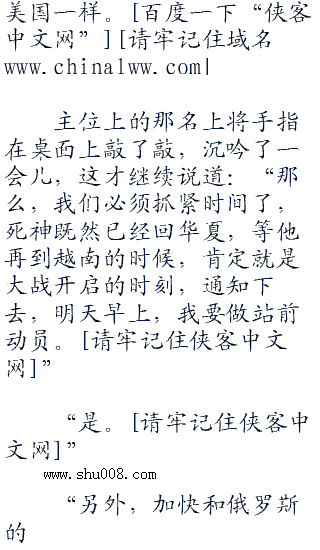 美国一样。[百度一下“侠客
中文网”][请牢记住域名
www.china1ww.com|
主位上的那名上将手指
在桌面上敲了敲，沉吟了一
会儿，这才继续说道：“那
么，我们必须抓紧时间了，
死神既然已经回华夏，等他
再到越南的时候，肯定就是
大战开启的时刻，通知下
去，明天早上，我要做站前
动员。[请牢记住侠客中文
网]”
“是。[请牢记住侠客中
文网]”
www.shu008.com
“另外，加快和俄罗斯
的